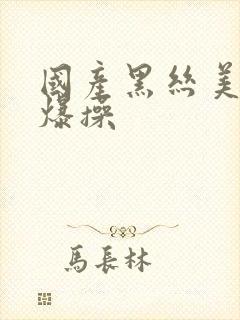 國產黑絲美
爆操
馬長林